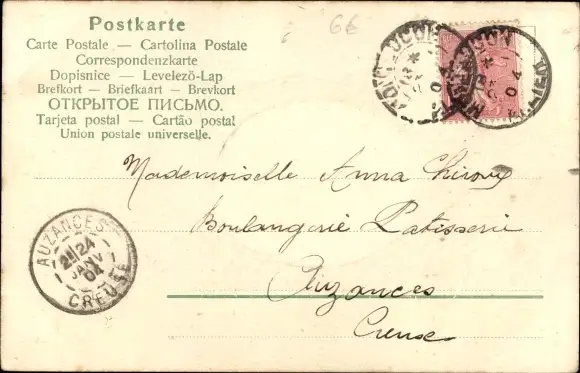 Postkarte
Carte Postale — Cartolina Postale
Correspondenzkarte
Dopisnice — Levelező-Lap
Brefkort — Briefkaart — Brevkort
ОТКРЫТОЕ ПИСЬМО.
Tarjeta postal — Cartão postal
Union postale universelle.
6€
04
Mademoiselle Anna
Boulangerie Patisserie
Auzances
Creuse
AUZANCES
24
JANV
04
CREUSE